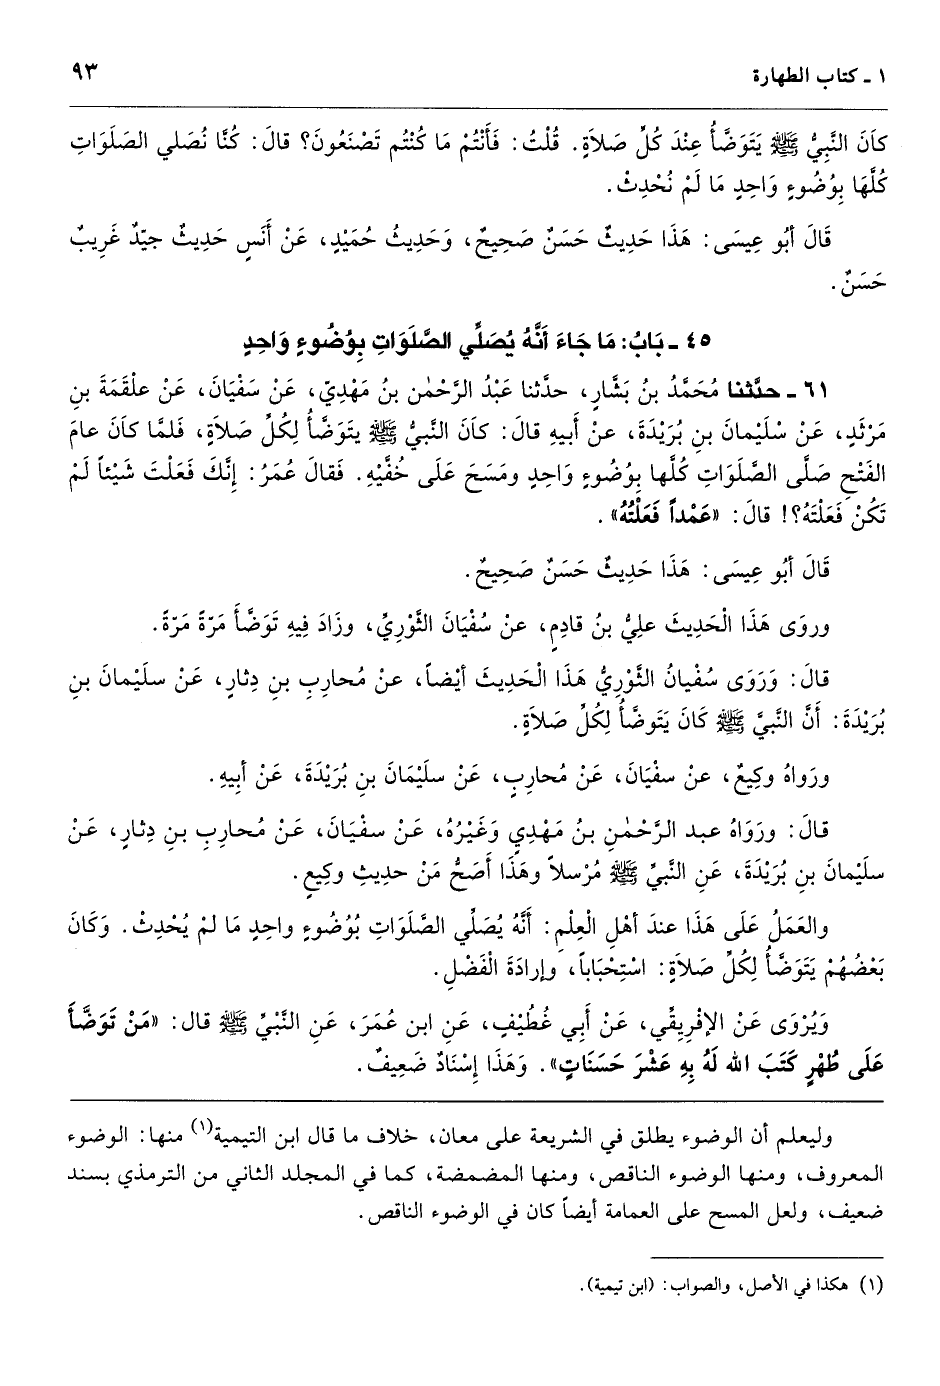 ١ ـ كتاب الطهارة ٩٣
كَانَ النَّبِيُّ ﷺ يَتَوَضَّأُ عِنْدَ كُلِّ صَلاَةٍ. قُلْتُ: فَأَنْتُمْ مَا كُنْتُم تَصْنَعُونَ؟ قالَ: كُنَّا نُصَلي الصَلَوَاتِ
كُلَّهَا بِوُضُوءٍ وَاحِدٍ مَا لَمْ نُحْدِثْ.
قَالَ أبُو عِيسَى: هَذَا حَدِيثٌ حَسَنٌ صَحِيحٌ، وَحَدِيثُ حُمَيْدٍ، عَنْ أَنَسٍ حَدِيثٌ جيّدٌ غَرِيبٌ
حَسَنٌ.
٤٥ ـ بَابُ: مَا جَاءَ أَنَّهُ يُصَلِّي الصَّلَوَاتِ بِوُضُوءٍ وَاحِدٍ
٦١ ـ حدَّثنا مُحَمَّدُ بنُ بَشَّارٍ، حدَّثنا عَبْدُ الرَّحْمٰن بنُ مَهْدِيّ، عَنْ سَفْيَانَ، عَنْ علْقَمَةَ بنِ
مَرْثَدٍ، عَنْ سْلَيمانَ بنِ بُرَيْدَةَ، عنْ أبيهِ قالَ: كانَ النَّبيُّ ﷺ يتَوَضَّأُ لِكُلِّ صَلاَةٍ، فَلمَّا كانَ عامَ
الفَتْحِ صَلَّى الصَّلَوَاتِ كُلَّها بِوُضُوءٍ وَاحِدٍ ومَسَحَ عَلَى خُفَّيْهِ. فَقالَ عُمَرُ: إنَّكَ فَعَلْتَ شَيْئاً لَمْ
تَكُنْ فَعَلْتَهُ؟! قالَ: «عَمْداً فَعَلْتُهُ».
قَالَ أبُو عِيسَى: هَذَا حَدِيثٌ حَسَنٌ صَحِيحٌ.
وروَى هَذَا الْحَدِيثَ علِيُّ بنُ قادِمٍ، عنْ سُفْيَانَ الثَّوْرِيِّ، وزَادَ فِيهِ تَوَضَّأَ مَرّةً مَرّةً.
قالَ: وَرَوَى سُفْيانُ الثَّوْرِيُّ هَذَا الْحَدِيثَ أيْضاً، عنْ مُحارِبِ بنِ دِثارٍ، عَنْ سليْمانَ بنِ
بُرَيْدَةَ: أنَّ النَّبيَّ ﷺ كَانَ يَتَوضَّأُ لِكُلِّ صَلاَةٍ.
ورَواهُ وكِيعٌ، عنْ سفْيَانَ، عَنْ مُحارِبٍ، عَنْ سليْمَانَ بنِ بُرَيْدَةَ، عَنْ أبيهِ.
قالَ: ورَوَاهُ عبد الرَّحْمٰنِ بنُ مَهْدِي وَغَيْرُهُ، عَنْ سفْيَانَ، عَنْ مُحارِبِ بنِ دِثارٍ، عَنْ
سليْمانَ بنِ بُرَيْدَةَ، عَنِ النَّبيِّ ﷺ مُرْسلاً وهَذَا أَصَحُّ مَنْ حديثِ وكِيعٍ.
والعَمَلُ عَلَى هَذَا عندَ أهْلِ الْعِلْمِ: أَنَّهُ يُصَلِّي الصَّلَوَاتِ بُوُضُوءٍ واحِدٍ مَا لمْ يُحْدِثْ. وَكَانَ
بَعْضُهُمْ يَتَوَضَّأُ لِكُلِّ صَلاَةٍ: اسْتِحْبَاباً، وإرادَةَ الْفَضْلِ.
وَيُرْوَى عَنْ الإفرِيقِّي، عَنْ أَبي غُطَيْفٍ، عَنِ ابن عُمَرَ، عَنِ النَّبْيِّ ﷺ قال: «مَنْ تَوَضَّأَ
عَلَى طُهْرٍ كَتَبَ الله لَهُ بِهِ عَشْرَ حَسَنَاتٍ». وَهَذَا إسْنَادٌ ضَعِيفٌ.
وليعلم أن الوضوء يطلق في الشريعة على معان، خلاف ما قال ابن التيمية(١) منها: الوضوء
المعروف، ومنها الوضوء الناقص، ومنها المضمضة، كما في المجلد الثاني من الترمذي بسند
ضعيف، ولعل المسح على العمامة أيضاً كان في الوضوء الناقص.
(١) هكذا في الأصل، والصواب: (ابن تيمية).